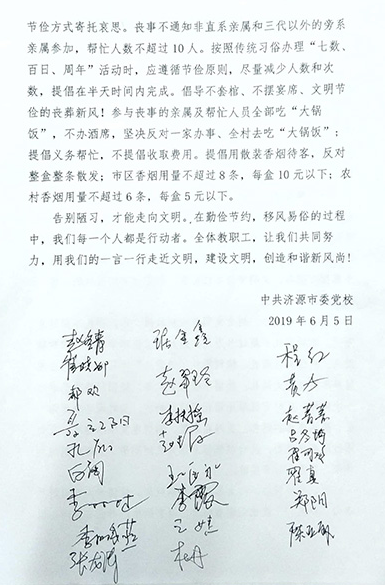 节俭方式寄托哀思。丧事不通知非直系亲属和三代以外的旁系
亲属参加，帮忙人数不超过 10 人。按照传统习俗办理“七数、
百日、周年”活动时，应遵循节俭原则，尽量减少人数和次
数，提倡在半天时间内完成。倡导不套棺、不摆宴席、文明节
俭的丧葬新风！参与丧事的亲属及帮忙人员全部吃“大锅
饭”，不办酒席，坚决反对一家办事、全村去吃“大锅饭”；
提倡义务帮忙，不提倡收取费用。提倡用散装香烟待客，反对
整盒整条散发；市区香烟用量不超过 8 条，每盒 10 元以下；农
村香烟用量不超过 6 条，每盒 5 元以下。
告别陋习，才能走向文明。在勤俭节约，移风易俗的过程
中，我们每一个人都是行动者。全体教职工，让我们共同努
力，用我们的一言一行走近文明，建设文明，创造和谐新风尚！
中共济源市委党校
2019 年 6 月 5 日
程红
郝欢
赵翠玲
黄力
李扶摇
赵菁菁
孔
白润
翟真
李
李霞
郑阳
王
杜丹